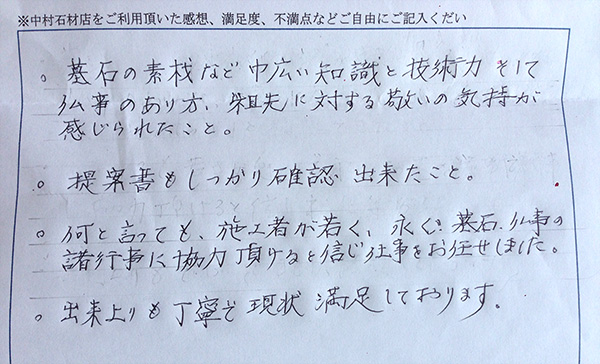 ※中村石材店をご利用頂いた感想、満足度、不満点などご自由にご記入くだい
。墓石の素材など巾広い知識と技術力そして
仏事のあり方、祖先に対する敬いの気持が
感じられたこと。
。提案書もしっかり確認出来たこと。
。何と言っても、施工者が若く、永く墓石、仏事の
諸行事に協力頂けると信じ仕事をお任せしました。
。出来上りも丁寧で現状満足しております。